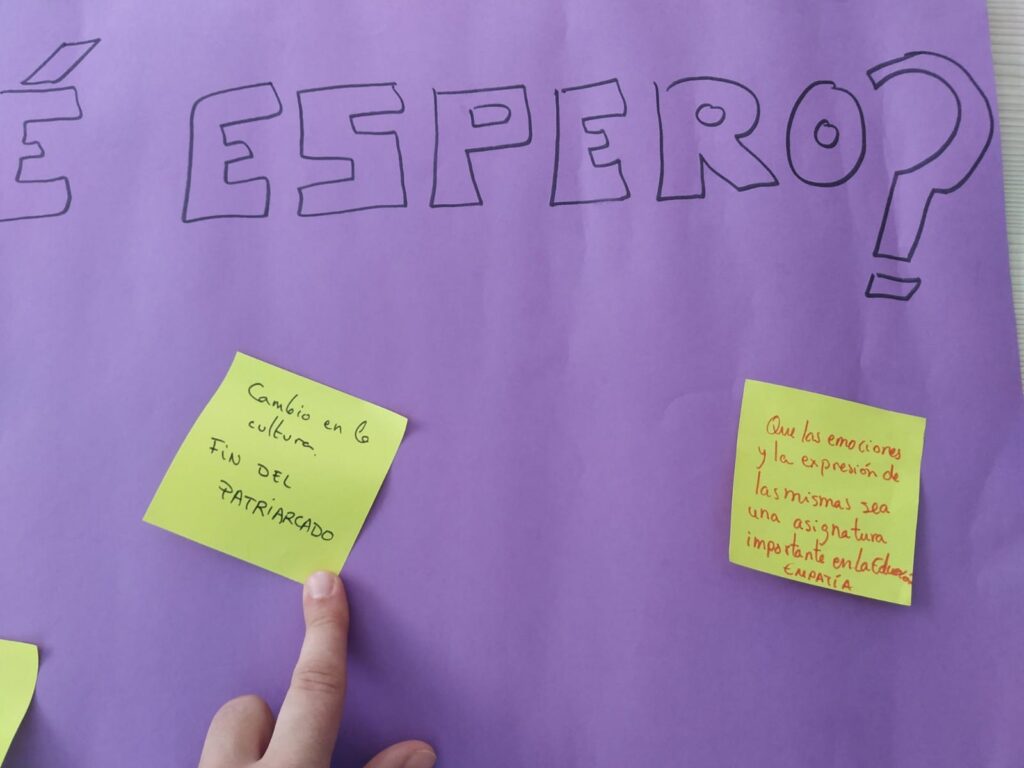 É ESPERO?
Cambio en la
cultura.
FIN DEL
PATRIARCADO
Que las emociones
y la expresión de
las mismas sea
una asignatura
importante en la Educación
EMPATÍA